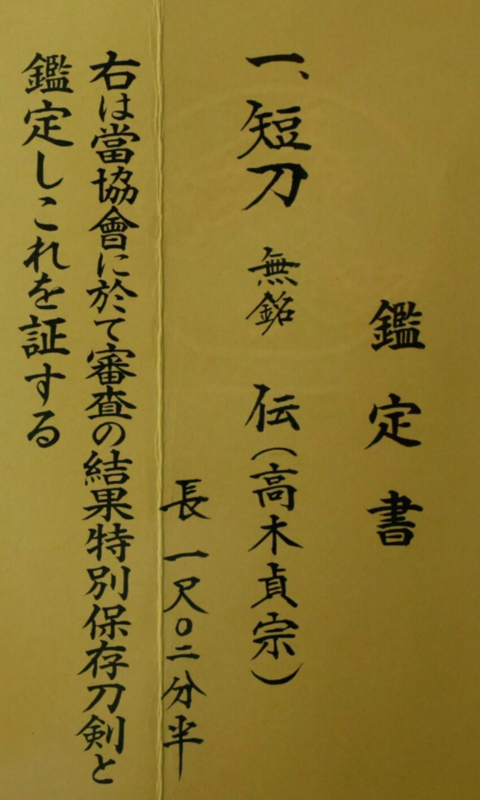 鑑定書
一、短刀 無銘 伝(高木貞宗)
長一尺〇二分半
右は當協會に於て審査の結果特別保存刀剣と
鑑定しこれを証する